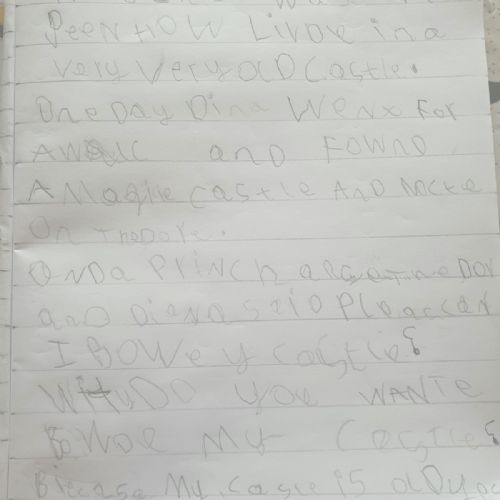 Peen HOW LivDe in a
very very old Castle.
One Day Dina Wenx For
AWalC and FOwnD
A Magile CasTLe AnD Nocte
On TheDore.
OnDa PrinCh the Dor
and Diana seid Ple
I BOWey Castle?
WHy DO you WANTe
BOWOe My Castle?
Bicase My Casle is oldu